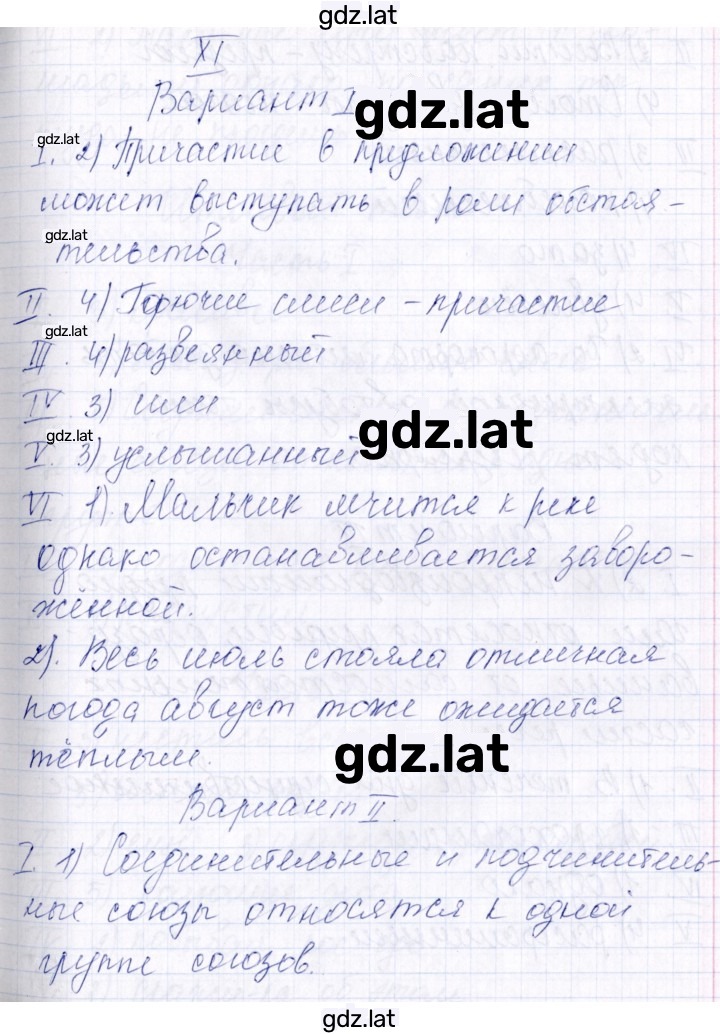 gdz.lat
XI
Вариант I
gdz.lat
gdz.lat
I. 2) Причастие в предложении
может выступать в роли обстоя-
gdz.lat
тельства.
II. 4) Горючие смеси - причастие
gdz.lat
III. 4) развеянный
IV 3) или
gdz.lat
gdz.lat
V. 3) услышанный
VI 1). Мальчик мчится к реке
однако останавливается заворо-
жённой.
2). Весь июль стояла отличная
погода август тоже ожидается
тёплым.
gdz.lat
Вариант II.
I. 1) Соединительные и подчинитель-
ные союзы относятся к одной
группе союзов.
gdz.lat